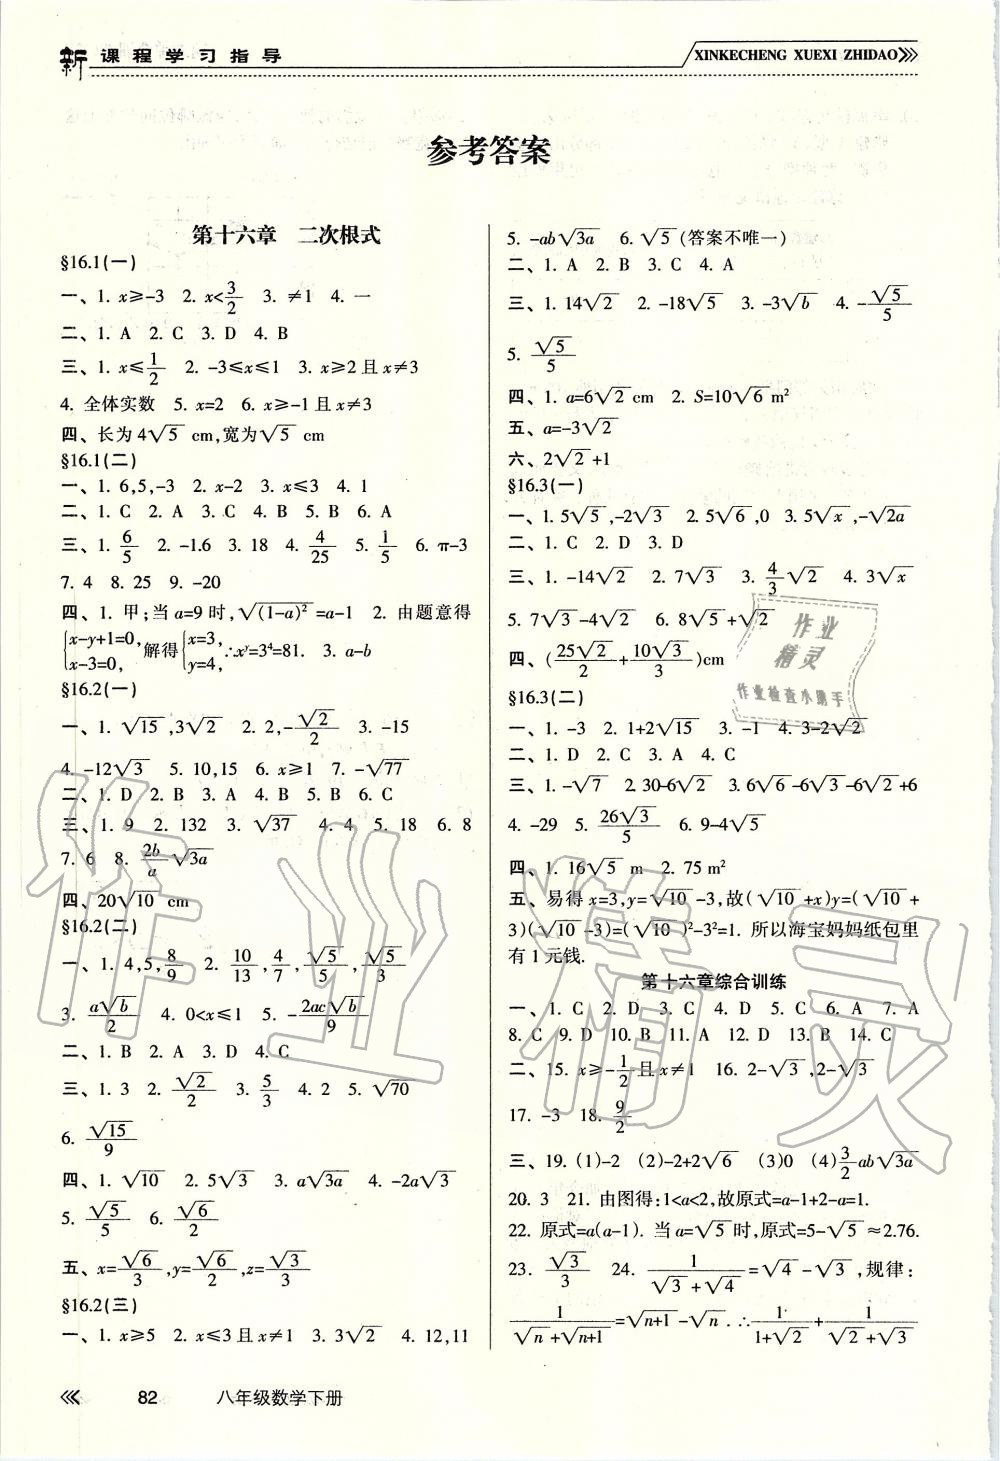 新 课程学习指导
XINKECHENG XUEXI ZHIDAO
参考答案
第十六章 二次根式
§16.1(一)
一、1. x≥-3 2. x<3/2 3. ≠1 4. 一
二、1. A 2. C 3. D 4. B
三、1. x≤1/2 2. -3≤x≤1 3. x≥2且x≠3
4. 全体实数 5. x=2 6. x≥-1且x≠3
四、长为4√5 cm,宽为√5 cm
§16.1(二)
一、1. 6,5,-3 2. x-2 3. x≤3 4. 1
二、1. C 2. A 3. C 4. B 5. B 6. A
三、1. 6/5 2. -1.6 3. 18 4. 4/25 5. 1/5 6. π-3
7. 4 8. 25 9. -20
四、1. 甲;当a=9时,√(1-a)²=a-1 2. 由题意得
{x-y+1=0, x-3=0, 解得{x=3, y=4, ∴xʸ=3⁴=81. 3. a-b
§16.2(一)
一、1. √15,3√2 2. 2,-√2/2 3. -15
4. -12√3 5. 10,15 6. x≥1 7. -√77
二、1. D 2. B 3. A 4. B 5. B 6. C
三、1. 9 2. 132 3. √37 4. 4 5. 18 6. 8
7. 6 8. 2b/a√3a
四、20√10 cm
§16.2(二)
一、1. 4,5,8/9 2. 10/13,4/7,√5/5,√5/3
3. a√b/2 4. 0<x≤1 5. -2ac√b/9
二、1. B 2. A 3. D 4. C
三、1. 3 2. √2/2 3. 5/3 4. 2 5. √70
6. √15/9
四、1. √10 2. 5√3 3. a√3a 4. -2a√3
5. √5/5 6. √6/2
五、x=√6/3,y=√6/2,z=√3/3
§16.2(三)
一、1. x≥5 2. x≤3且x≠1 3. 3√2 4. 12,11
5. -ab√3a 6. √5(答案不唯一)
二、1. A 2. B 3. C 4. A
三、1. 14√2 2. -18√5 3. -3√b 4. -√5/5
5. √5/5
四、1. a=6√2 cm 2. S=10√6 m²
五、a=-3√2
六、2√2+1
§16.3(一)
一、1. 5√5,-2√3 2. 5√6,0 3. 5√x,-√2a
二、1. C 2. D 3. D
三、1. -14√2 2. 7√3 3. 4/3√2 4. 3√x
5. 7√3-4√2 6. 8√5+√2
四、(25√2/2+10√3/3)cm
§16.3(二)
一、1. -3 2. 1+2√15 3. -1 4. 3-2√2
二、1. D 2. C 3. A 4. C
三、1. -√7 2. 30-6√2 3. 6√6-6√3-6√2+6
4. -29 5. 26√3/5 6. 9-4√5
四、1. 16√5 m 2. 75 m²
五、易得x=3,y=√10-3,故(√10+x)y=(√10+
3)(√10-3)=(√10)²-3²=1. 所以海宝妈妈纸包里
有1元钱.
第十六章综合训练
一、1. C 2. D 3. C 4. D 5. C 6. A 7. A
8. C 9. D 10. B 11. A 12. D 13. B 14. C
二、15. x≥-1/2且x≠1 16. 2-√3,2-√3
17. -3 18. 9/2
三、19. (1)-2 (2)-2+2√6 (3)0 (4)3/2ab√3a
20. 3 21. 由图得:1<a<2,故原式=a-1+2-a=1.
22. 原式=a(a-1). 当a=√5时,原式=5-√5≈2.76.
23. √3/3 24. 1/(√3+√4)=√4-√3,规律:
1/(√n+√n+1)=√n+1-√n. ∴1/(1+√2)+1/(√2+√3)
作业
精灵
作业检查小助手
作业精灵
82 八年级数学下册